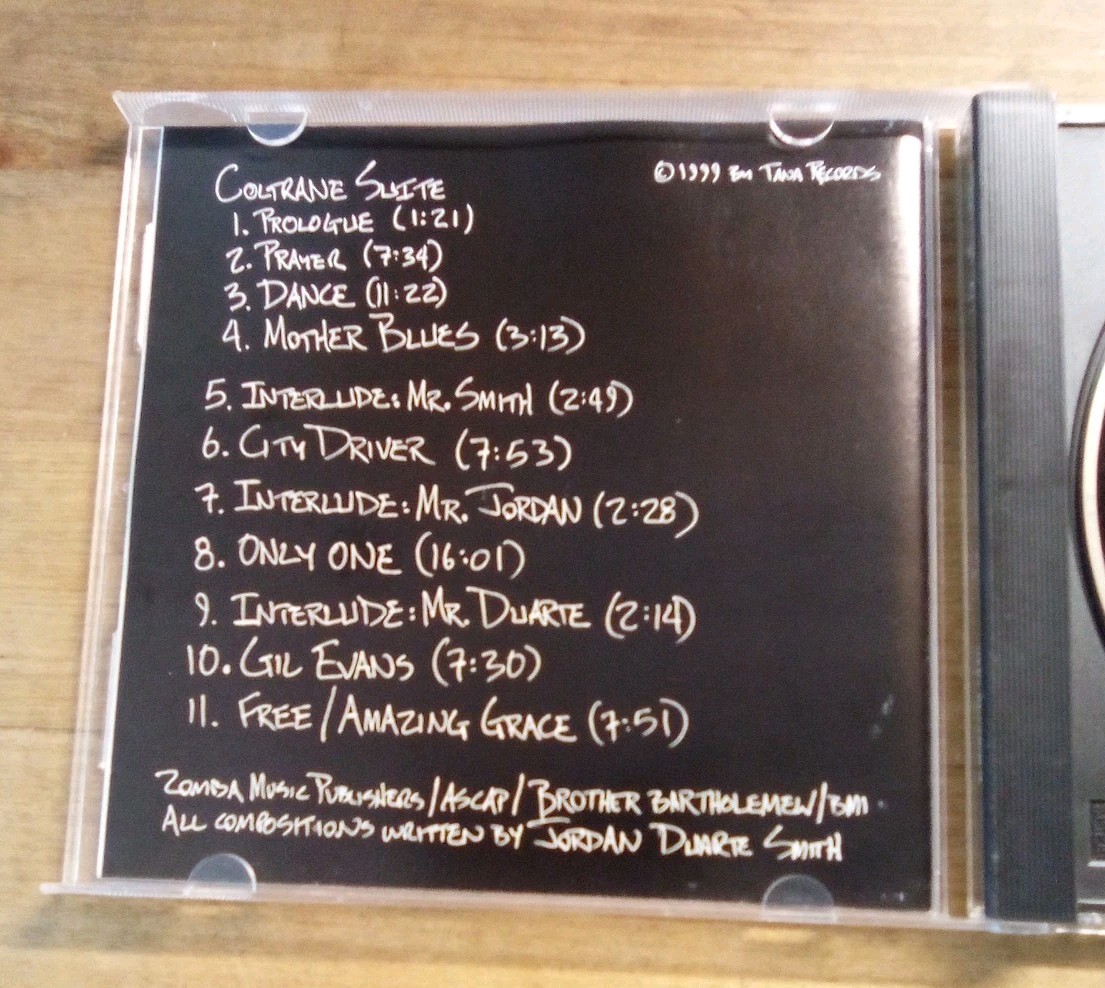 COLTRANE SUITE
© 1999 BM TANA RECORDS
1. PROLOGUE (1:21)
2. PRAYER (7:34)
3. DANCE (11:22)
4. MOTHER BLUES (3:13)
5. INTERLUDE: MR. SMITH (2:49)
6. CITY DRIVER (7:53)
7. INTERLUDE: MR. JORDAN (2:28)
8. ONLY ONE (16:01)
9. INTERLUDE: MR. DUARTE (2:14)
10. GIL EVANS (7:30)
11. FREE / AMAZING GRACE (7:51)
ZOMBA MUSIC PUBLISHERS/ASCAP/BROTHER BARTHOLEMEW/BMI
ALL COMPOSITIONS WRITTEN BY JORDAN DUARTE SMITH